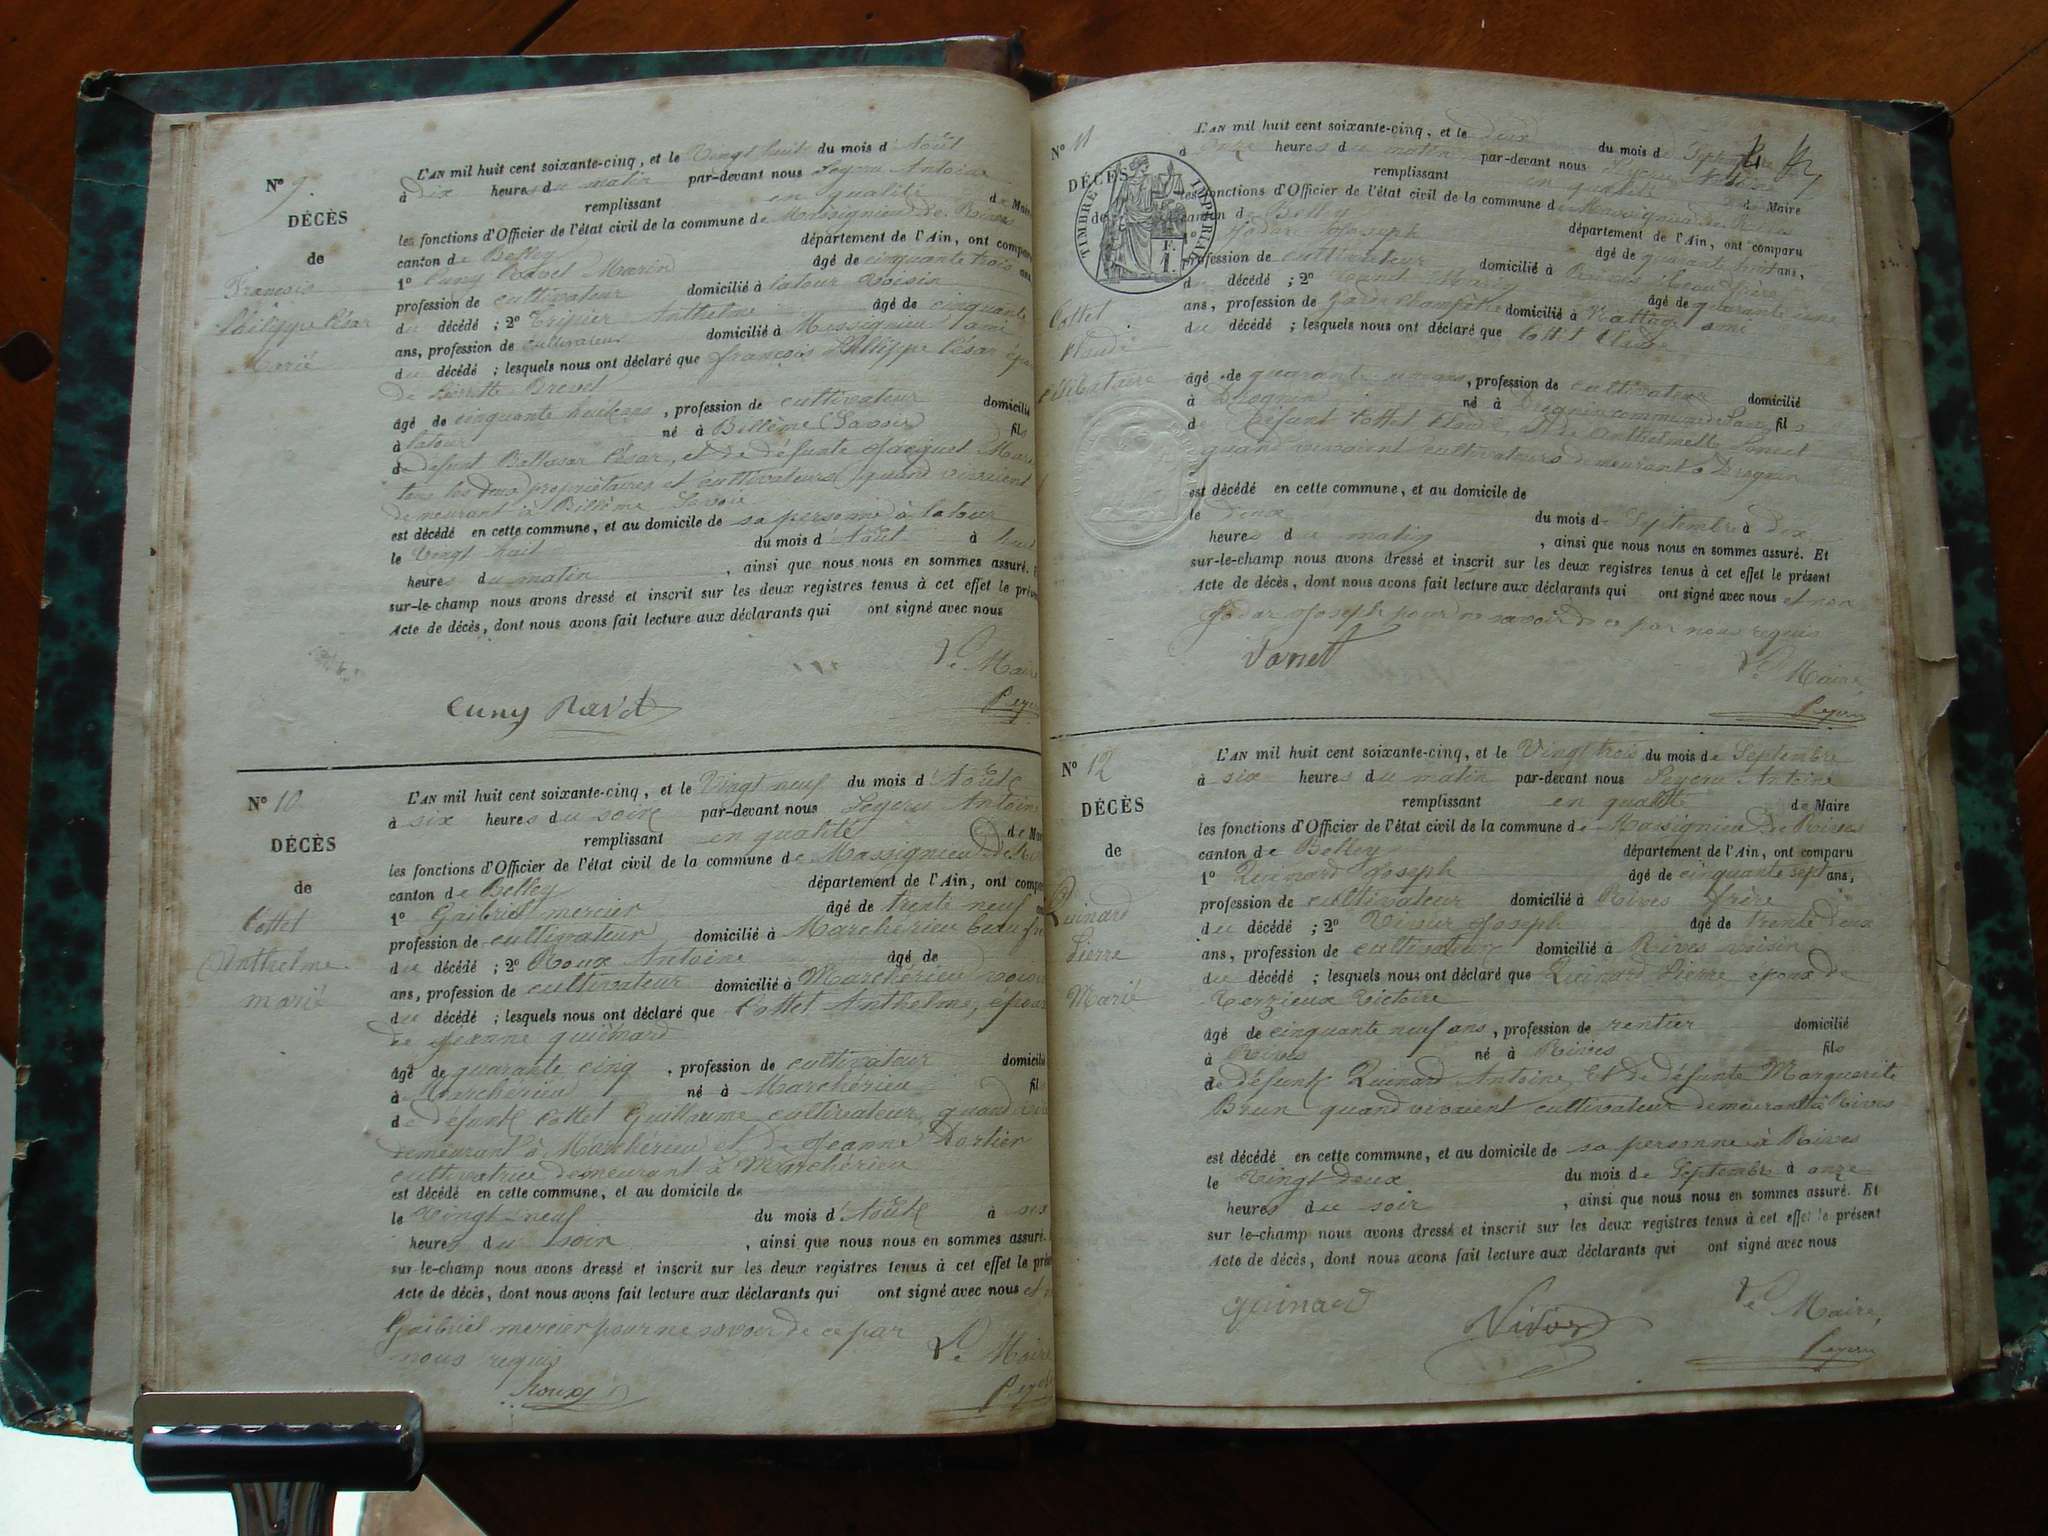 N° 9.
DÉCÈS
de
François
Philippe César
Marié
L'AN mil huit cent soixante-cinq, et le Vingt huit du mois d'Août
à dix heures du matin par-devant nous Peyeru Antoine
remplissant en qualité de Maire
les fonctions d'Officier de l'état civil de la commune de Massignieu de Rives
canton de Belley département de l'Ain, ont comparu
1° Cuny Ravet Marin âgé de cinquante trois ans
profession de cultivateur domicilié à latour voisin
du décédé ; 2° Tripier Anthelme âgé de cinquante
ans, profession de cultivateur domicilié à Massignieu ami
du décédé ; lesquels nous ont déclaré que françois Philippe César
de Pierrette Drevet
âgé de cinquante huit ans, profession de cultivateur domicilié
à latour né à Billème Savoie fils
de défunt Baltasar César, et de défunte Jacquet
tous les deux propriétaires et cultivateurs quand vivaient
demeurant à Billème Savoie
est décédé en cette commune, et au domicile de sa personne à latour
le Vingt huit du mois d'Août à
heures du matin, ainsi que nous nous en sommes assuré.
sur-le-champ nous avons dressé et inscrit sur les deux registres tenus à cet effet le
Acte de décès, dont nous avons fait lecture aux déclarants qui ont signé avec nous
Le Maire
Cuny Ravet
N° 10
DÉCÈS
de
Cottet
Anthelme
marié
L'AN mil huit cent soixante-cinq, et le Vingt neuf du mois d'Août
à six heures du soir par-devant nous Peyeru Antoine
remplissant en qualité de
les fonctions d'Officier de l'état civil de la commune de Massignieu de
canton de Belley département de l'Ain, ont
1° Gaibriel mercier âgé de trente neuf
profession de cultivateur domicilié à Marcherieu beau
du décédé ; 2° Roux Antoine âgé de
ans, profession de cultivateur domicilié à Marcherieu
du décédé ; lesquels nous ont déclaré que Cottet Anthelme, epoux
de Jeanne quinard
âgé de quarante cinq, profession de cultivateur domicilié
à Marcherieu né à Marcherieu fil
de défunt Cottet Guillaume cultivateur quand
demeurant à Marcherieu et de Jeanne Dortier
cultivatrice demeurant à Marcherieu
est décédé en cette commune, et au domicile de
le Vingt neuf du mois d'Août à
heures du soir, ainsi que nous nous en sommes assuré.
sur-le-champ nous avons dressé et inscrit sur les deux registres tenus à cet effet le
Acte de décès, dont nous avons fait lecture aux déclarants qui ont signé avec nous et
Gaibriel mercier pour ne savoir de ce par
nous requis
Le Maire
Roux
N° 11
DÉCÈS
TIMBRE IMPÉRIAL
Cottet
Claude
célibataire
L'AN mil huit cent soixante-cinq, et le deux du mois de Septembre
à onze heures du matin par-devant nous Peyeru Antoine
remplissant en qualité de Maire
les fonctions d'Officier de l'état civil de la commune de Massignieu de Rives
canton de Belley département de l'Ain, ont comparu
1° Jodar Joseph âgé de quarante huit ans,
profession de cultivateur domicilié à Rives beau frère
du décédé ; 2° âgé de quarante
ans, profession de garde champêtre domicilié à Nattage ami
du décédé ; lesquels nous ont déclaré que Cottet Claude
âgé de quarante un ans, profession de cultivateur domicilié
à Drognin né à Drognin commune de fils
de défunt Cottet Claude, et de Anthelmette
quand vivaient cultivateurs demeurant à Drognin
est décédé en cette commune, et au domicile de
le Deux du mois de Septembre à dix
heures du matin, ainsi que nous nous en sommes assuré. Et
sur-le-champ nous avons dressé et inscrit sur les deux registres tenus à cet effet le présent
Acte de décès, dont nous avons fait lecture aux déclarants qui ont signé avec nous et non
Jodar Joseph pour ne savoir de ce par nous requis
Le Maire
Peyeru
N° 12
DÉCÈS
de
Quinard
Pierre
Marié
L'AN mil huit cent soixante-cinq, et le Vingt trois du mois de Septembre
à six heures du matin par-devant nous Peyeru Antoine
remplissant en qualité de Maire
les fonctions d'Officier de l'état civil de la commune de Massignieu de Rives
canton de Belley département de l'Ain, ont comparu
1° Quinard Joseph âgé de cinquante sept ans,
profession de cultivateur domicilié à Rives frère
du décédé ; 2° Joseph âgé de trente deux
ans, profession de cultivateur domicilié à Rives voisin
du décédé ; lesquels nous ont déclaré que Quinard Pierre epoux de
Terzieux Victoire
âgé de cinquante neuf ans, profession de rentier domicilié
à Rives né à Rives fils
de défunt Quinard Antoine et de défunte Marguerite
Brun quand vivaient cultivateur demeurant à Rives
est décédé en cette commune, et au domicile de sa personne à Rives
le Vingt deux du mois de Septembre à onze
heures du soir, ainsi que nous nous en sommes assuré. Et
sur le-champ nous avons dressé et inscrit sur les deux registres tenus à cet effet le présent
Acte de décès, dont nous avons fait lecture aux déclarants qui ont signé avec nous
Le Maire,
quinard
Peyeru